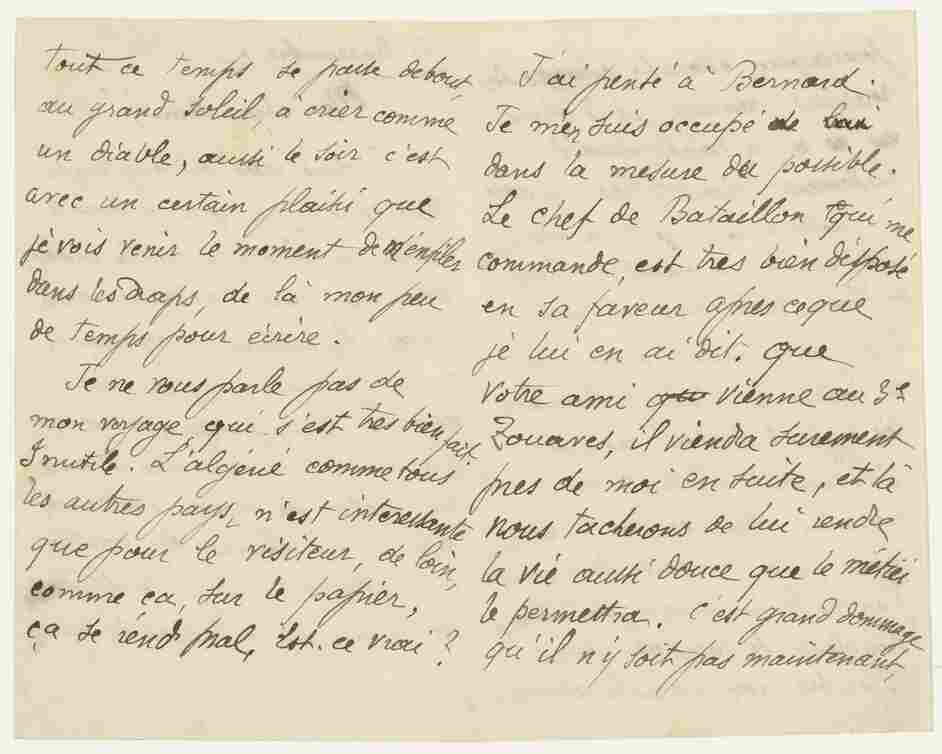 tout ce temps se passe debout
au grand soleil, à crier comme
un diable, aussi le soir c'est
avec un certain plaisir que
je vois venir le moment de m'enfiler
dans les draps, de là mon peu
de temps pour écrire.
Je ne vous parle pas de
mon voyage qui s'est très bien fait
Inutile. L'algérie comme tous
les autres pays, n'est interessante
que pour le visiteur, de loin,
comme ça, sur le papier,
ça se rend mal, Est-ce vrai?
J'ai pensé à Bernard.
Je m'en suis occupé de lui
dans la mesure du possible.
Le chef de Bataillon qui me
commande, est très bien disposé
en sa faveur apres ce que
je lui en ai dit. que
votre ami qu vienne au 3e
Zouaves, il viendra surement
pres de moi en suite, et là
nous tacherons de lui rendre
la vie aussi douce que le métier
le permettra. C'est grand dommage
qu'il n'y soit pas maintenant,